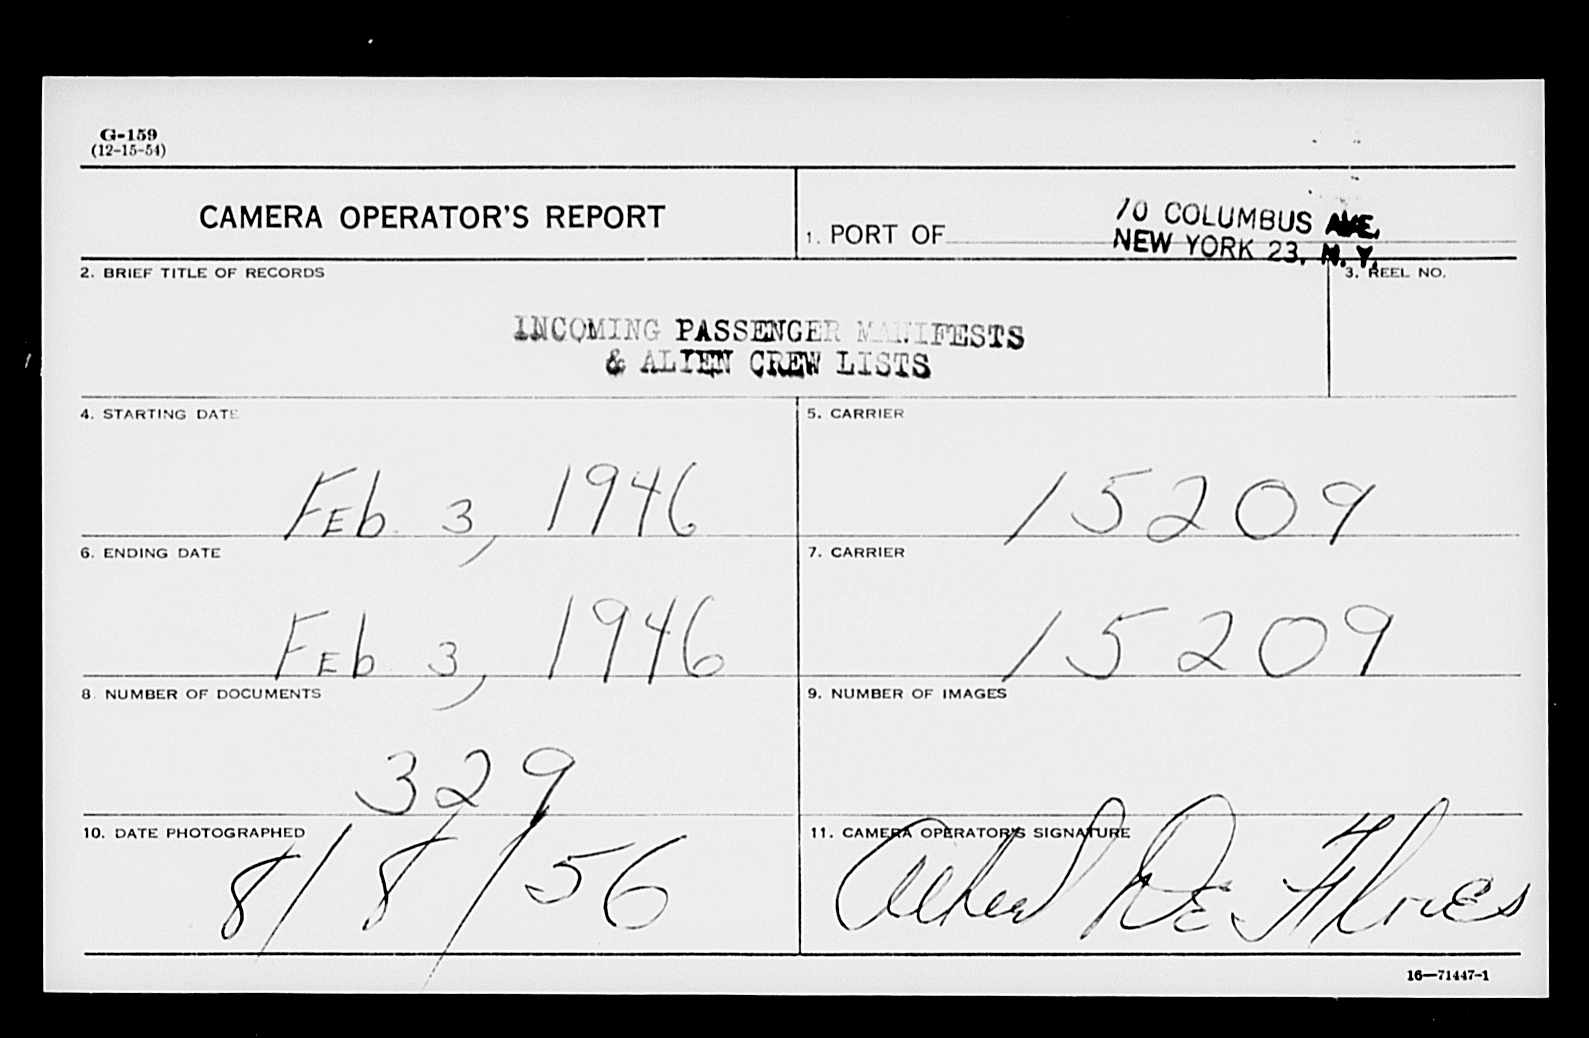 G-159
(12-15-54)
CAMERA OPERATOR'S REPORT
1. PORT OF
70 COLUMBUS AVE.
NEW YORK 23, N. Y.
2. BRIEF TITLE OF RECORDS
3. REEL NO.
INCOMING PASSENGER MANIFESTS
& ALIEN CREW LISTS
4. STARTING DATE
5. CARRIER
Feb 3, 1946
15209
6. ENDING DATE
7. CARRIER
Feb 3, 1946
15209
8. NUMBER OF DOCUMENTS
9. NUMBER OF IMAGES
329
10. DATE PHOTOGRAPHED
11. CAMERA OPERATOR'S SIGNATURE
8/8/56
De Flores
16—71447-1